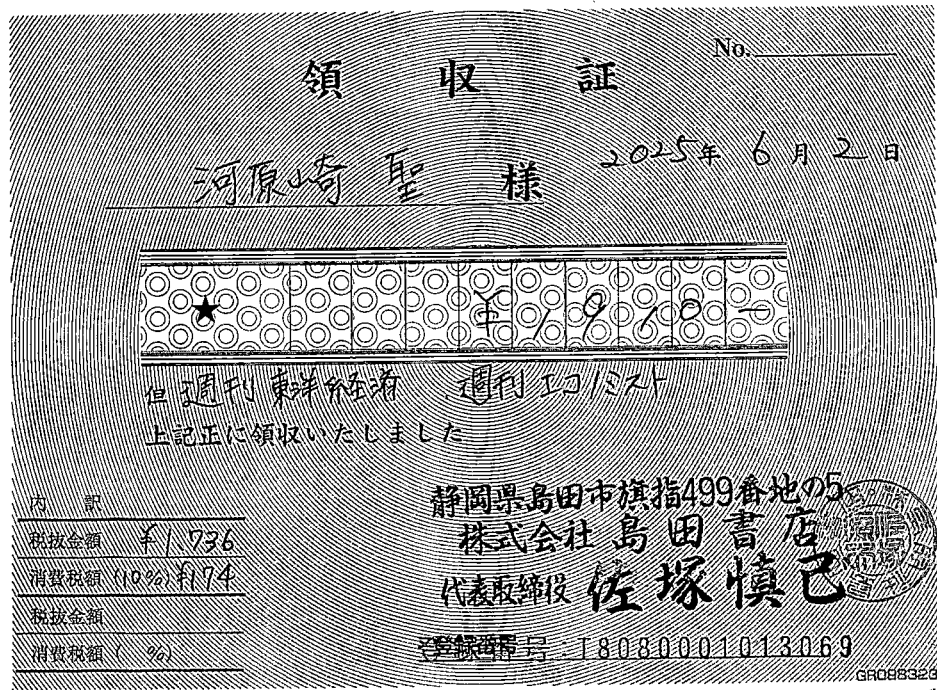 No.
領収証
2025年6月2日
河原崎 聖 様
★ ¥1910-
但 週刊 東洋経済 週刊 エコノミスト
上記正に領収いたしました
内 訳
税抜金額 ¥1,736
消費税額(10%) ¥174
税抜金額
消費税額( %)
静岡県島田市旗指499番地の5
株式会社 島田書店
代表取締役 佐塚慎己
登録番号 T8080001013069
GR088323